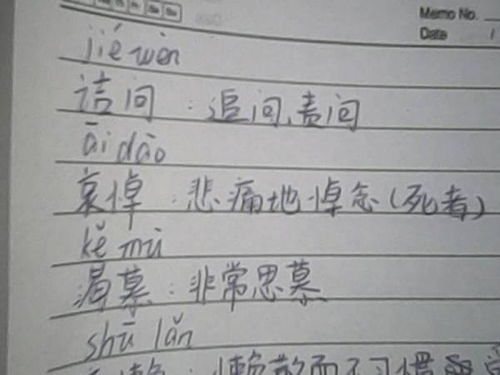 Memo No.
Date /
jié wèn
诘问：追问、责问
āi dào
哀悼：悲痛地悼念(死者)
kě mù
渴慕：非常思慕
shū lǎn
懒散而不习惯